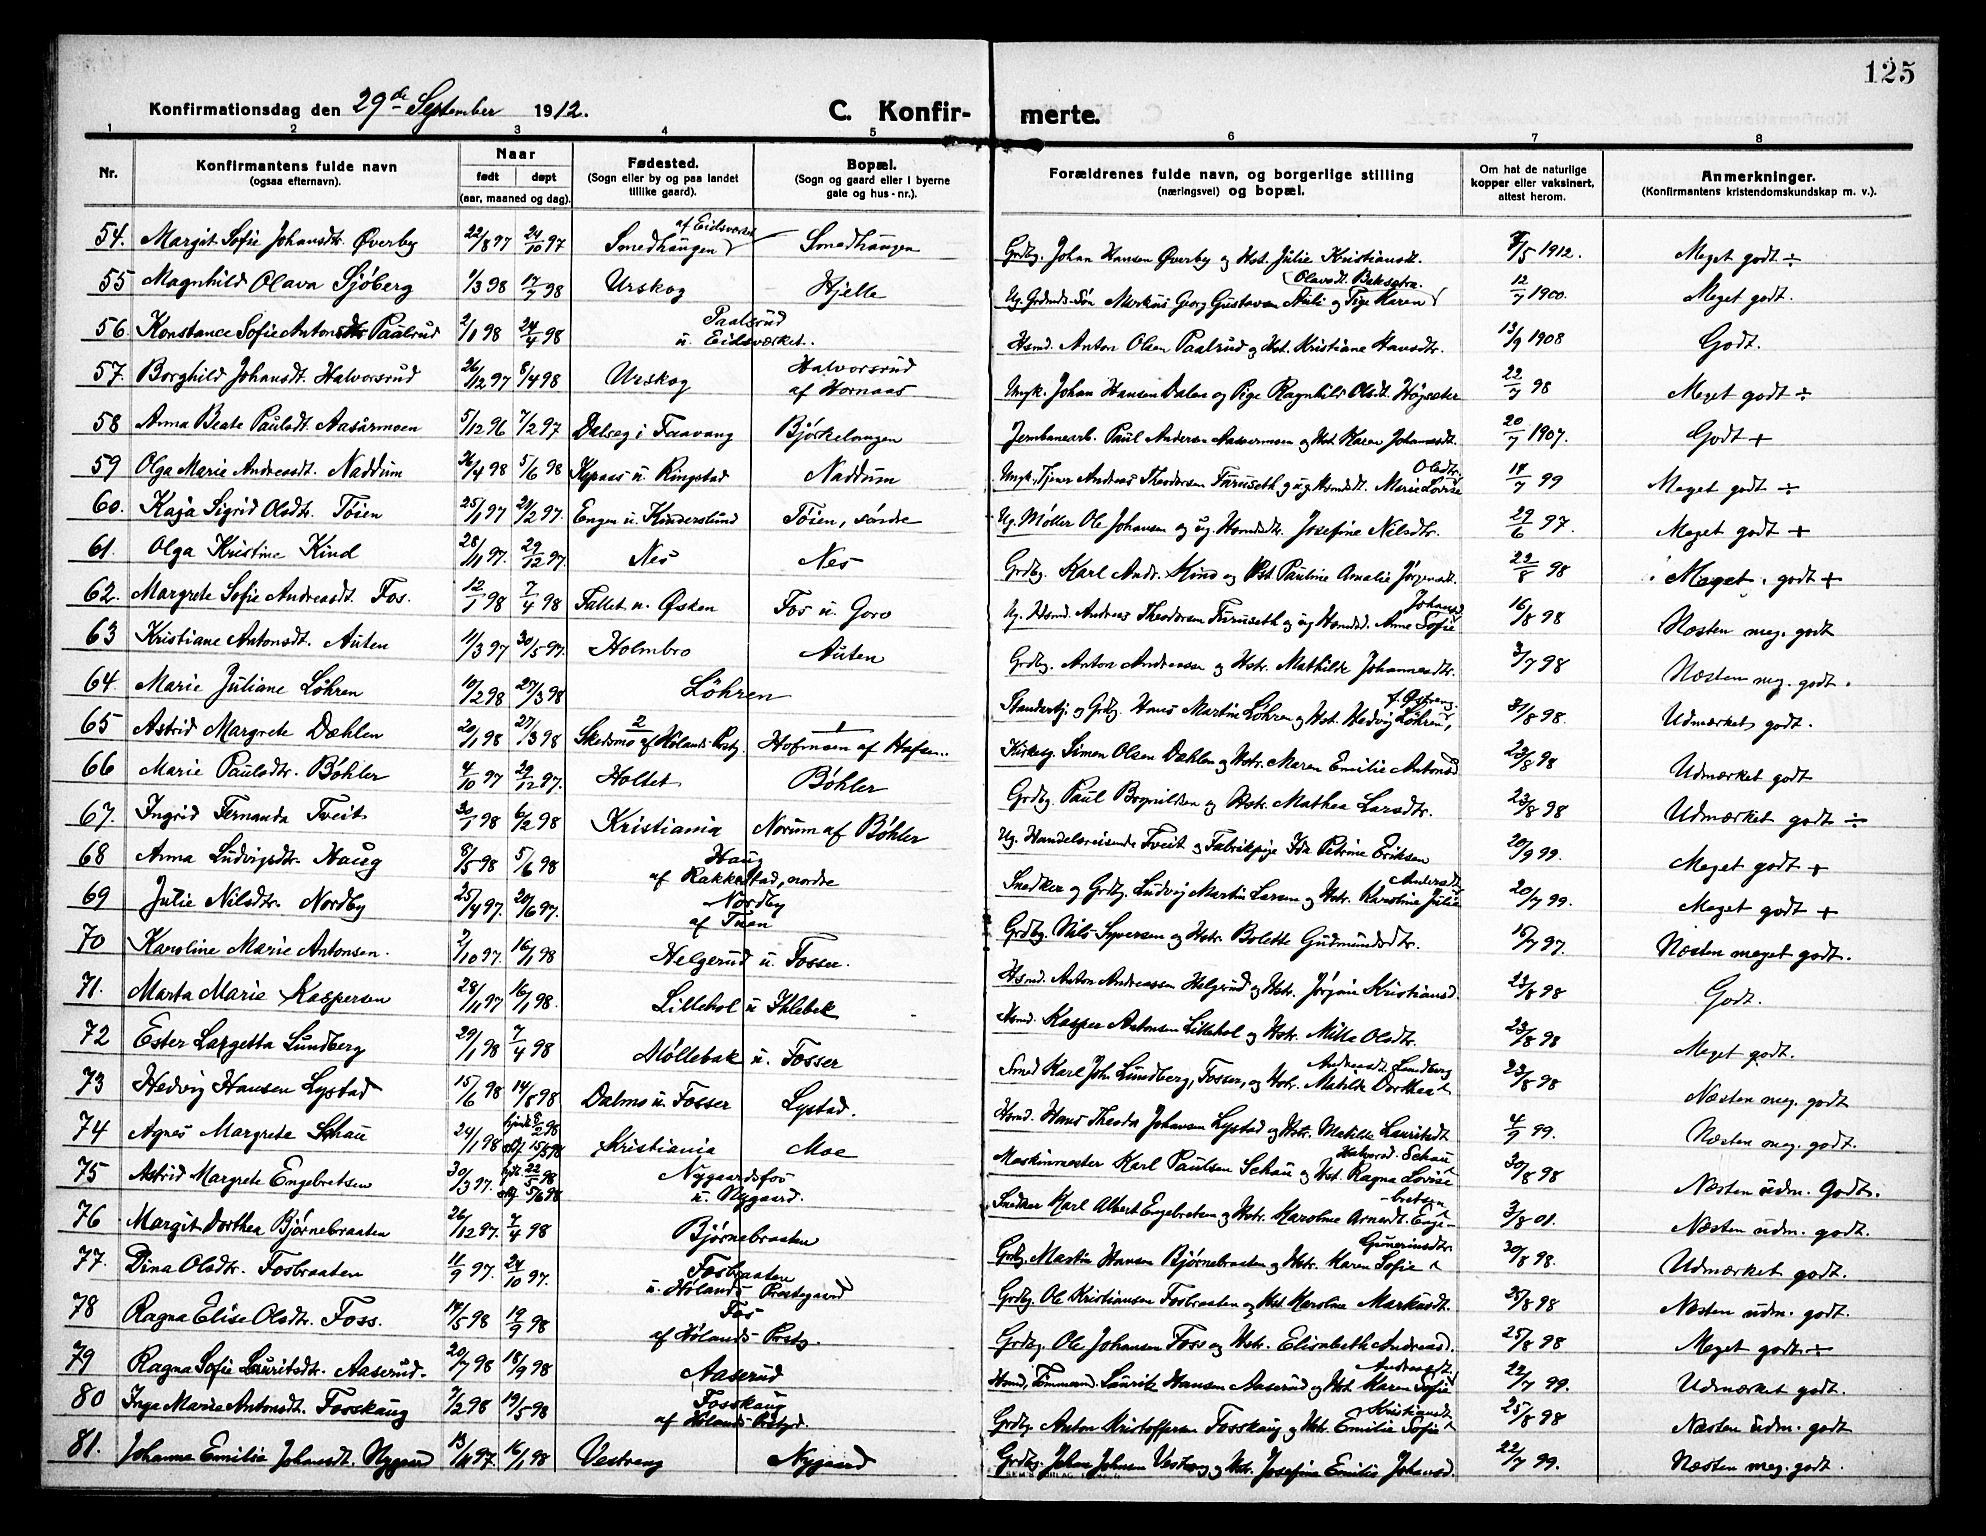 125
Konfirmationsdag den 29de September 1912.
C. Konfirmerte.
1 2 3 4 5 6 7 8
Nr. Konfirmantens fulde navn (ogsaa efternavn). Naar født døpt (aar, maaned og dag). Fødested. (Sogn eller by og paa landet tillike gaard). Bopæl. (Sogn og gaard eller i byerne gate og hus-nr.). Forældrenes fulde navn, og borgerlige stilling (næringsvei) og bopæl. Om hat de naturlige kopper eller vaksinert, attest herom. Anmerkninger. (Konfirmantens kristendomskundskap m. v.).
54. Margit Sofie Johansdtr. Øverby 22/8 97 24/10 97 Smedhaugen af Eidsverket Smedhaugen Grdbg. Johan Hansen Øverby og Hst. Julie Kristiansdt. /5 1912. Meget godt ÷
55 Magnhild Olava Sjøberg 1/3 98 17/7 98 Urskog Hjelle Ug. Grdmds.Søn Markus Georg Gustavsen Auli og Pige Karen Olavsdt. Bæksætra. 12/7 1900. Meget godt.
56 Konstance Sofie Antonsdtr Paalsrud 2/1 98 24/4 98 Paalsrud u. Eidsværket. Hsmd. Anton Olsen Paalsrud og Hst. Kristiane Hansdtr. 13/9 1908 Godt.
57. Borghild Johansdt. Halvorsrud 26/12 97 8/4 98 Urskog Halvorsrud af Hornaas Ungk. Johan Hansen Dalen og Pige Ragnhild Olsdt. Høgsæter 22/7 98 Meget godt ÷
58 Anna Beate Paulsdt. Aasarmoen 5/12 96 7/2 97 Dalseg i Foravang Bjørkelangen Jernbanearb. Paul Andersen Aasermoen og Hst. Karen Johannesdt. 20/7 1907. Godt +
59 Olga Marie Andreasdt. Naddum 26/4 98 5/6 98 Kopaas u. Ringstad Naddum Ungk. Tjener Andreas Theodorsen Furuseth og ug. Hsmdsdt. Marie Lovise Olsdtr. 17/7 99 Meget godt ÷
60. Kaja Sigrid Olsdtr. Tøien 25/1 97 20/2 97. Engen u. Kinderslund Tøien, søndre Ug. Møller Ole Johansen og ug. Hsmdsdtr. Josefine Nilsdtr. 29/6 97. Meget godt +
61. Olga Kristine Kind 28/11 97. 29/12 97. Nes Nes Grdbg. Karl Andr. Kind og Hst. Pauline Amalie Jørgensdt. 22/8 98 Meget godt +
62. Margrete Sofie Andreasdt. Fos. 12/1 98 7/4 98 Fallet u. Øsken Fos u. Goro Ug. Hsmd. Andreas Theodorsen Furuseth og ug. Hsmdsd. Anne Sofie Johansd. 16/8 98 Næsten meg. godt
63 Kristiane Antonsdt. Auten 11/3 97 30/5 97. Holmbro Auten Grdbg. Anton Andreassen og Hstr. Mathilde Johannesdtr. 3/7 98 Næsten meg. godt.
64. Marie Juliane Løhren 10/2 98 27/3 98 Løhren Standertj. og Grdbg. Hans Martin Løhren og Hst. Hedvig Løhren, f. Østreng. 31/8 98. Udmærket godt.
65 Astrid Margrete Dæhlen 20/1 98 27/3 98 Skedsmo af Hølands Prstg. Hofmoen af Hofsen.. Kirkesg. Simen Olsen Dæhlen og Hstr. Maren Emilie Antonsd. 23/8 98 Udmærket godt
66 Marie Paulsdtr. Bøhler 4/10 97 29/12 97. Holtet Bøhler Grdbg. Paul Bojnildsen og Hstr. Mathea Larsdtr. 23/8 98 Udmærket godt ÷
67. Ingrid Fernanda Tveit 30/1 98 6/2 98 Kristiania Norum af Bøhler Ug. Handelsreisende Tveit og Fabrikpige Ida Petrine Eriksen 20/9 99. Meget godt +
68 Anna Ludvigsdtr. Haug 8/5 98 5/6 98 Haug af Rakkestad, nordre Snedker og Grdbg. Ludvig Martin Larsen og Hstr. Karoline Julie Andersdt. 20/7 99. Meget godt +
69 Julie Nilsdtr. Nordby 25/4 97. 20/6 97. Nordby af Tøien Grdbg. Nils Syversen og Hstr. Bolette Gudmundsdtr. 15/7 97. Næsten meget godt.
70 Karoline Marie Antonsen. 2/10 97. 16/1 98 Helgerud u. Fosser. Hsmd. Anton Andreassen Helgerud og Hstr. Jørgine Kristiansd. 23/8 98 Godt.
71. Marta Marie Kaspersen 28/11 97 16/1 98. Lillehol u Ihlebek Hsmd. Kasper Antonsen Lillehol og Hstr. Mille Olsdtr. 23/8 98 Meget godt.
72 Ester Largetta Lundberg 29/1 98 7/4 98 Møllebak u. Fosser Smed Karl Joh. Lundberg, Fosser, og Hstr. Matilde Dorthea Andreasdt. Lundberg 23/8 98 Næsten meg. godt
73 Hedvig Hansen Lystad 15/6 98 14/8 98 Dalmo u. Fosser Lystad. Hsmd. Hans Theodor Johansen Lystad og Hstr. Matilde Lauritsdt. 4/9 99. Næsten meg. godt.
74 Agnes Margrete Schau 24/1 98 hjemd. 5/2 98 stf. 15/5 98 Kristiania Moe Maskinmester Karl Paulsen Schau og Hst. Ragna Lovise Halvorsd. Schau 30/8 98 Næsten udm. godt.
75 Astrid Margrete Engebretsen 30/3 97. hjd. 22/5 98 stf. 5/6 98 Nygaardsfos u. Nygaard. Snedker Karl Albert Engebretsen og Hstr. Karoline Arnesdt. Engebretsen 3/8 01. Næsten udm. godt.
76 Margit Dorthea Bjørnebraaten 26/12 97. 7/4 98 Bjørnebraaten Grdbg. Martin Hansen Bjørnebraaten og Hstr. Karen Sofie Gunerinsdtr. 30/8 98. Udmærket godt.
77. Dina Olsdtr. Fosbraaten 11/9 97. 24/10 97. Fosbraaten u. Hølands Prestegaard Grdbg. Ole Kristiansen Fosbraaten og Hst. Karoline Markusdt. 25/8 98 Næsten udm. godt.
78 Ragna Elise Olsdtr. Foss. 14/5 98 19/9 98 Fos af Hølands Prstg. Grdbg. Ole Johansen Foss og Hstr. Elisabeth Andreasd. 25/8 98 Meget godt ÷
79 Ragna Sofie Lauritsdtr. Aaserud. 20/7 98 18/9 98 Aaserud Hsmd., Tømmermd. Lauritz Hansen Aaserud og Hst. Karen Sofie Andreasdt. 22/7 99. Udmærket godt.
80 Inga Marie Antonsdt. Fosskaug 7/2 98 19/5 98 Fosskaug af Hølands Prstgd. Grdbg. Anton Kristoffersen Fosskaug og Hstr. Emilie Sofie Kristiansdt. 25/8 98 Næsten udm. godt
81. Johanne Emilie Johansdt. Nygaard 13/11 97. 16/1 98 Vestreng Nygaard Grdbg. Johan Johnsen Vestreng og Hstr. Josefine Emilie Johansd. 22/7 99. Næsten meg. godt.